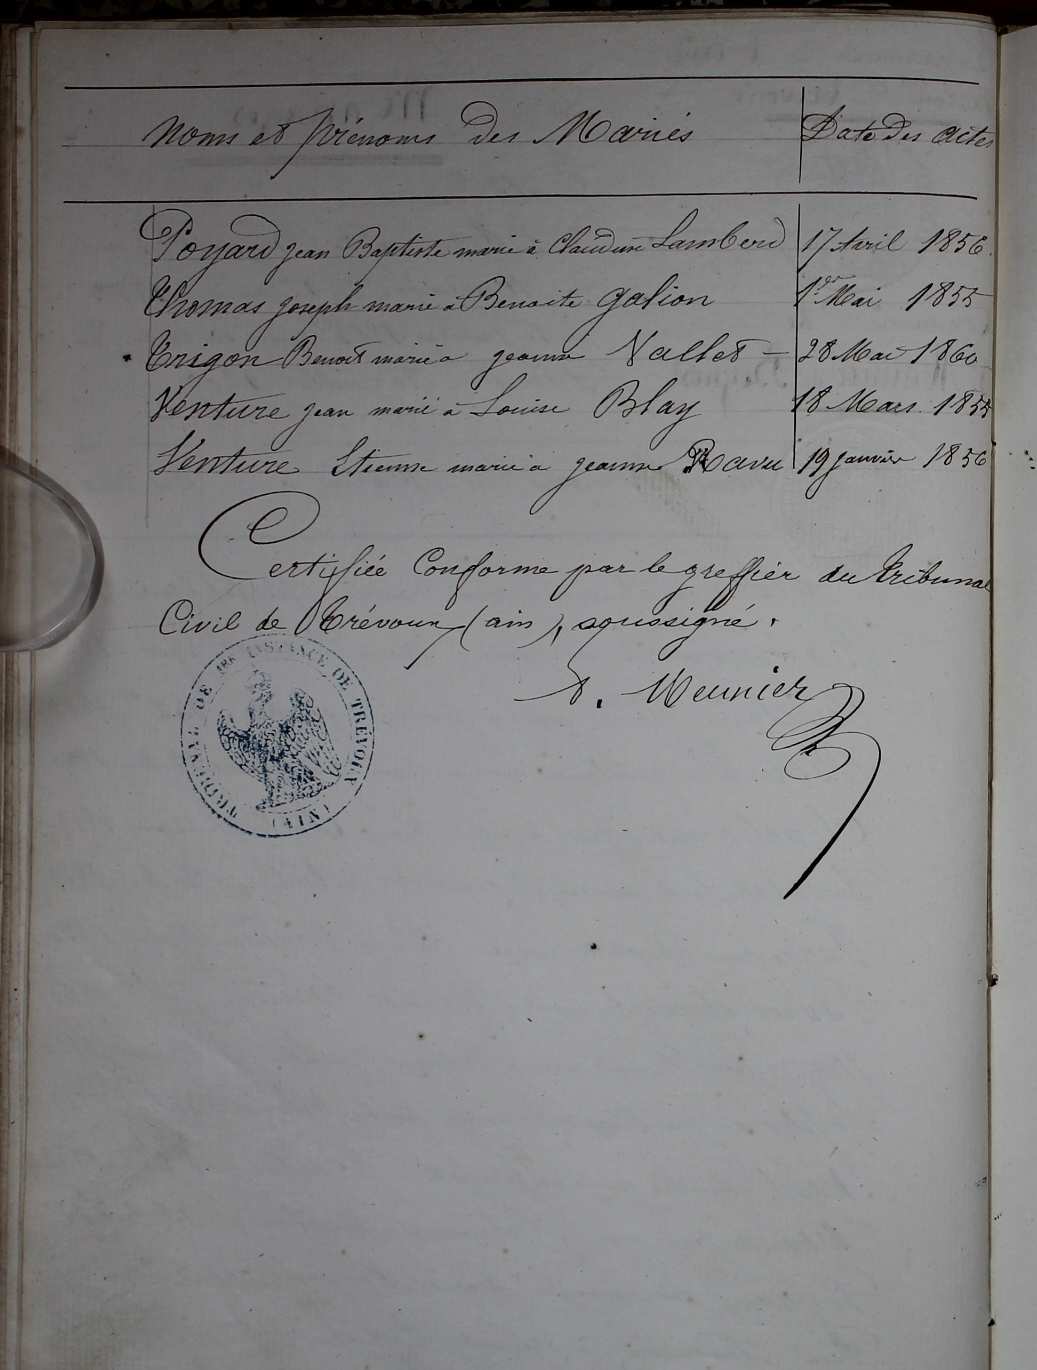 Noms et prénoms des Mariés Date des actes
Poyard jean Baptiste marié à Claudine Lamberd 17 Avril 1856
Thomas joseph marié à Benoite galion 1er Mai 1855
Trigon Benoit marié a jeanne Vallet – 28 Mai 1860
Venture jean marié à Louise Blay 18 Mars 1855
Venture Etienne marié a jeanne Ravu 19 janvier 1856
Certifiée Conforme par le greffier du tribunal
Civil de Trévoux (ain), soussigné.
A. Meunier
TRIBUNAL DE 1RE INSTANCE DE TRÉVOUX
(AIN)